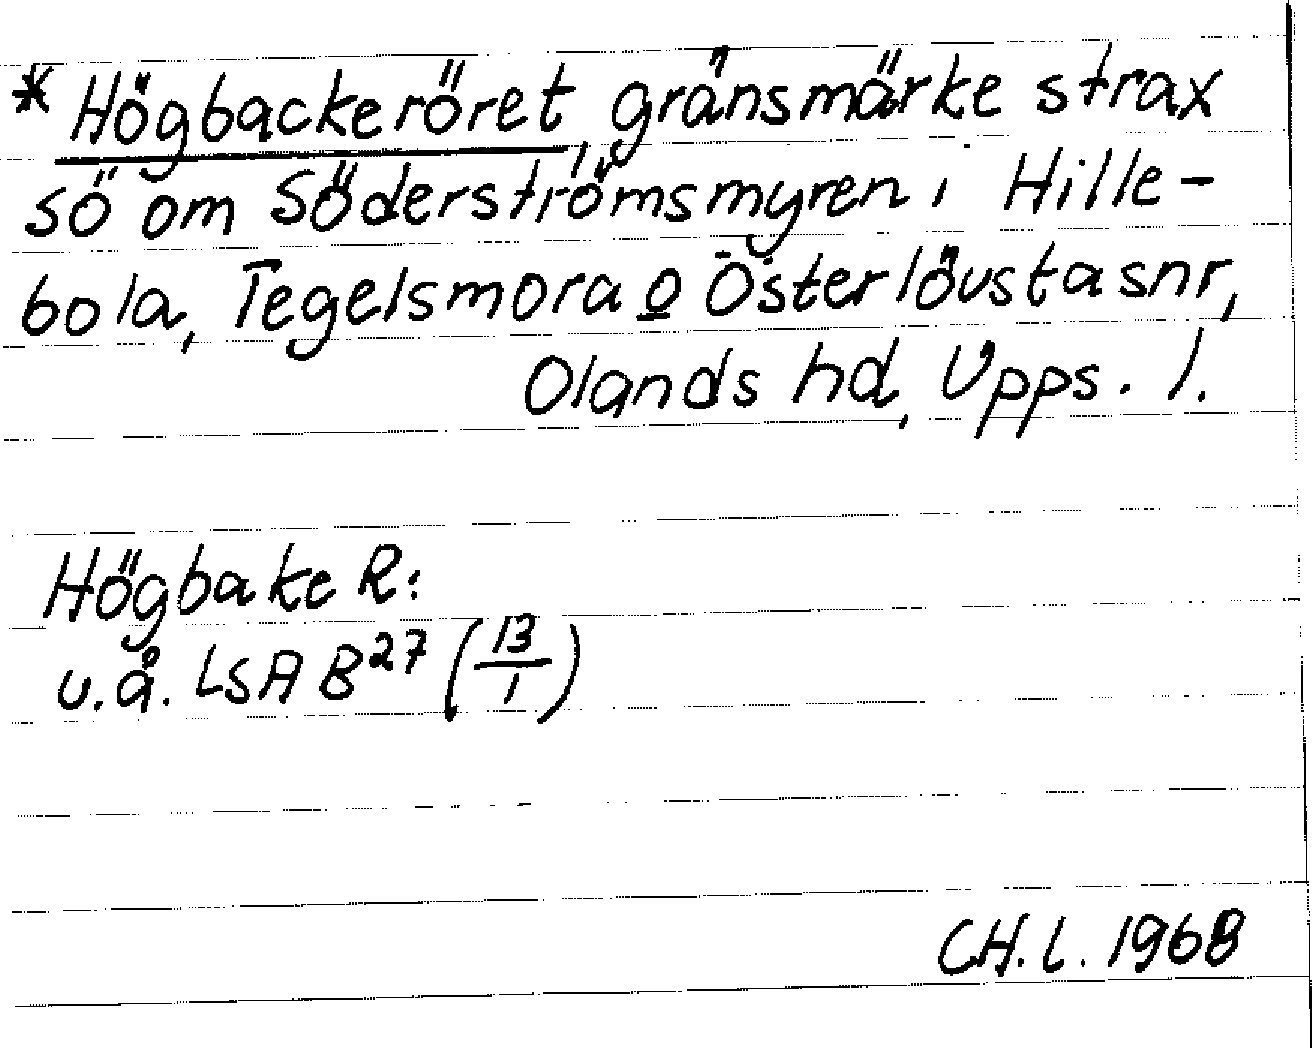 * Högbackeröret, gränsmärke strax
sö om Söderströmsmyren i Hille-
bola, Tegelsmora o Österlövsta snr,
Olands hd, Upps. l.
Högbake R:
u.å. LSA B²⁷ (13/1)
CH.L. 1968